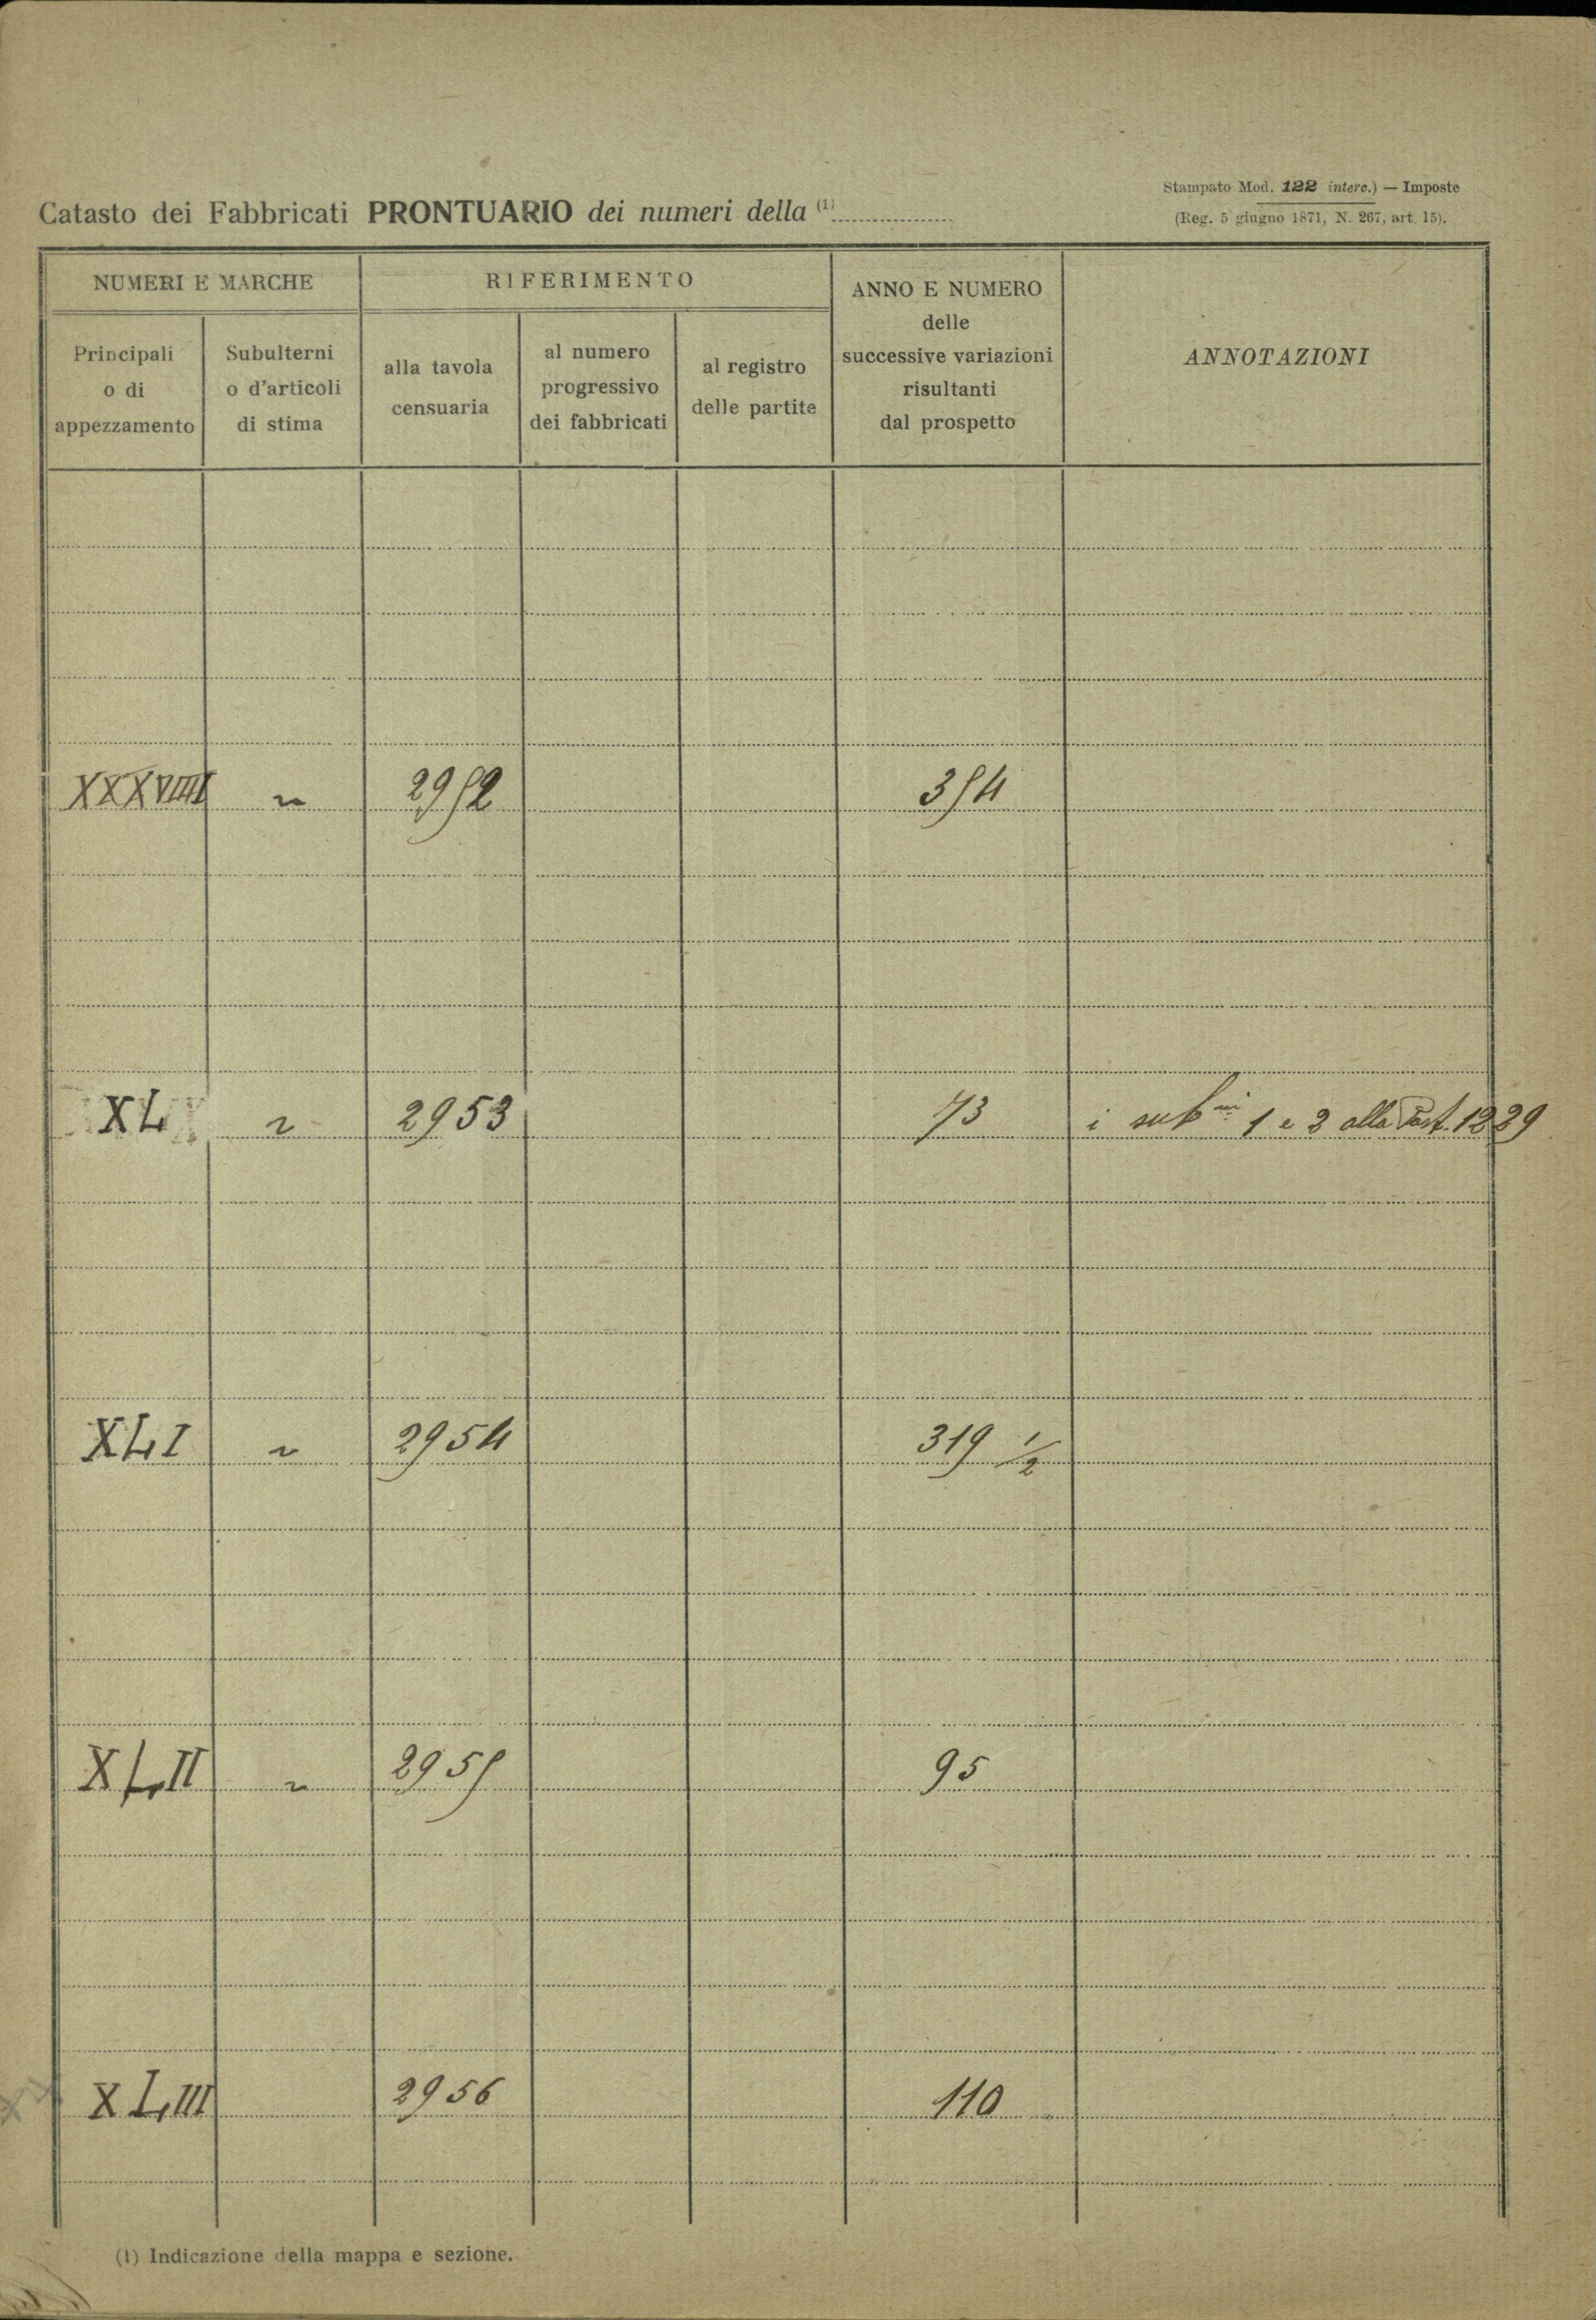 Stampato Mod. 122 interc.) — Imposte
(Reg. 5 giugno 1871, N. 267, art. 15).
Catasto dei Fabbricati PRONTUARIO dei numeri della (1)
NUMERI E MARCHE
RIFERIMENTO
ANNO E NUMERO
delle
successive variazioni
risultanti
dal prospetto
ANNOTAZIONI
Principali
o di
appezzamento
Subulterni
o d'articoli
di stima
alla tavola
censuaria
al numero
progressivo
dei fabbricati
al registro
delle partite
XXXVIIII " 2952 354
XL " 2953 73 i sub.ni 1 e 2 alla Part. 1229
XLI " 2954 319 1/2
XLII " 2955 95
XLIII 2956 110
(1) Indicazione della mappa e sezione.